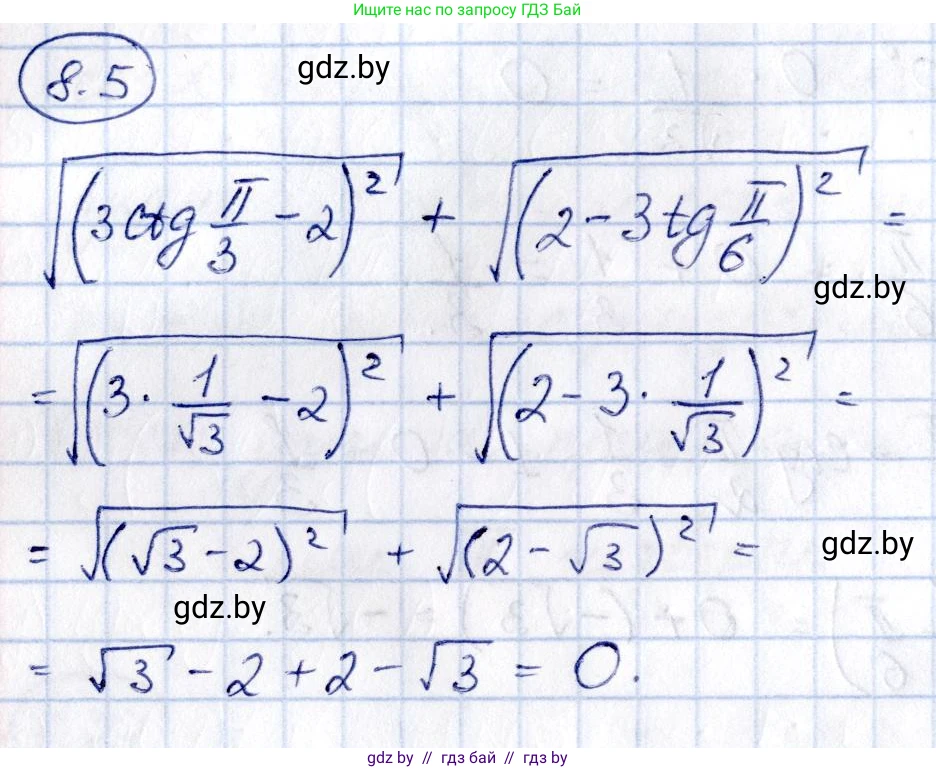 Ищите нас по запросу ГДЗ Бай
8.5
gdz.by
√(3ctg π/3 − 2)² + √(2 − 3tg π/6)² =
gdz.by
= √(3 · 1/√3 − 2)² + √(2 − 3 · 1/√3)² =
= √(√3 − 2)² + √(2 − √3)² =
gdz.by
gdz.by
= √3 − 2 + 2 − √3 = 0.
gdz by // гдз бай // гдз by